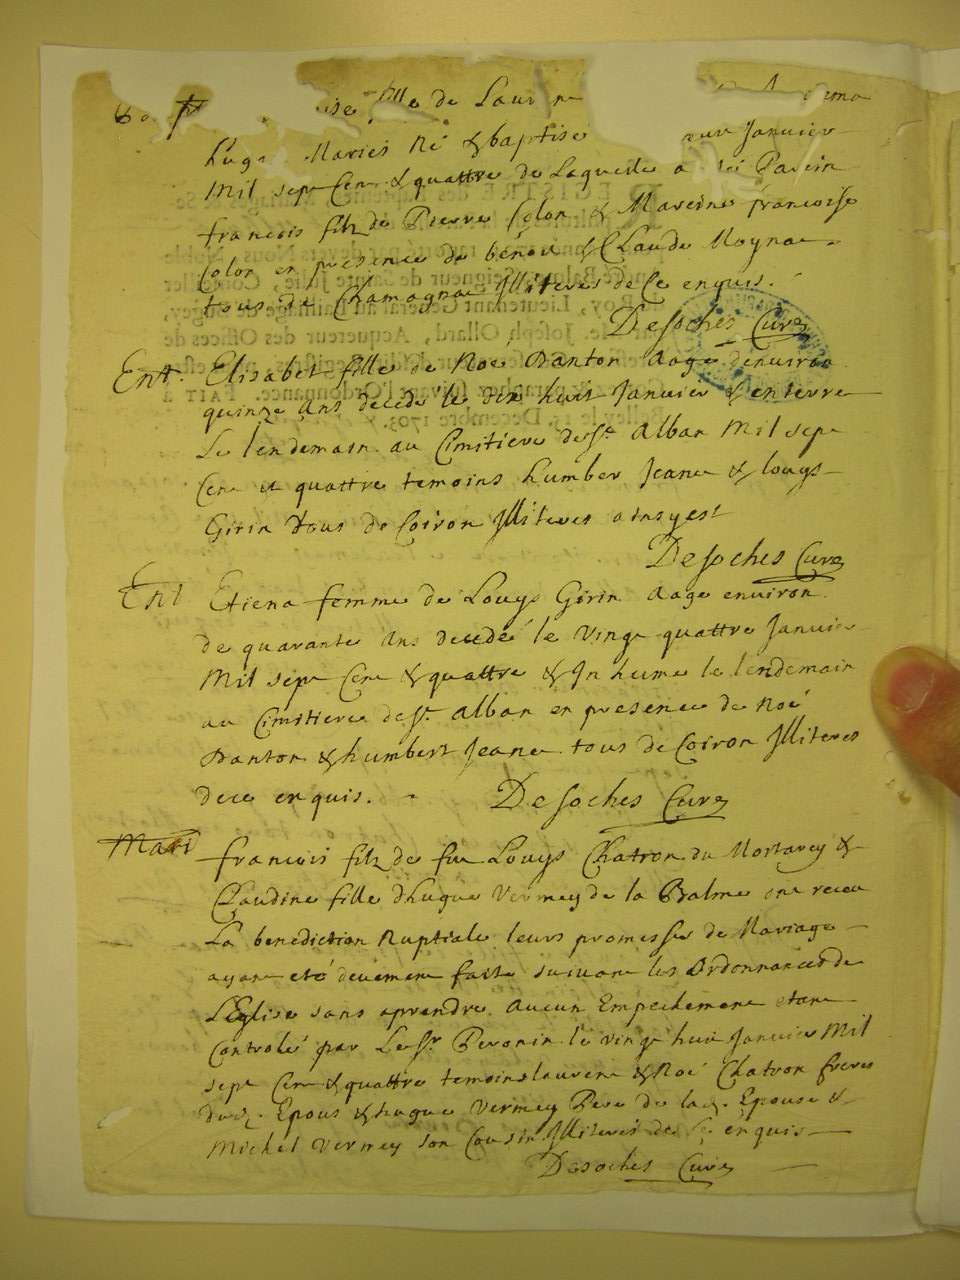 fille de Laur
Marier Né & baptisé Janvier
Mil sept Cent & quattre de Laquelle a été Parein
francois filz de Pierre Colon & Mareine francoise
Colon en presence de bénoit & Claude Moynat
tous de Chamagnat Illiteres de Ce enquis.
Desoches Curé
Ent. Elisabet fille de Noé Danton Aagé denviron
quinze Ans décédé le dix huit Janvier & enterré
Le lendemain au Cimitiere de St. Alban Mil sept
Cent & quattre temoins humber Jeane & Louys
Girin tous de Coiron Illiteres
Desoches Curé
Ent Etiena femme de Louys Girin Aagé environ
de quarante Ans decedé le Vingt quattre Janvier
Mil sept Cent & quattre & Inhumé le lendemain
au Cimitiere de St. Alban en presence de Noé
Danton & humbert Jeane tous de Coiron Illiteres
dece enquis. Desoches Curé
Mari francois filz de fu Louys Chatron du Mortarey &
Claudine fille dhugue Vermey de la Balme ont receu
La benediction Nuptiale leurs promesses de Mariage
ayant eté deuement faite suivant les Ordonnances de
LEglise sans aprendre Aucun Empechement etant
Controlé par Le Sr. Peronin le vingt huit Janvier Mil
sept Cent & quattre temoins laurent & Noé Chatron freres
dud. Epous & hugue Vermey Pere de lad. Epouse &
Michel Vermey son Cousin Illiterés de Ce enquis
Desoches Curé